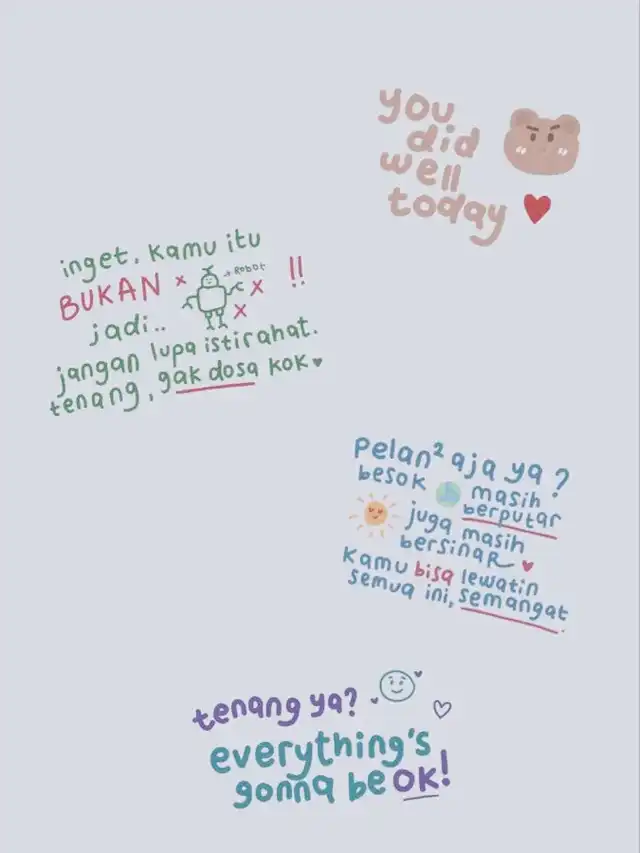 you
did
well
today
inget, kamu itu
BUKAN x → ROBOT !!
x
x
jadi..
jangan lupa istirahat.
tenang, gak dosa kok
Pelan² aja ya?
besok masih
berputar
juga masih
bersinar
kamu bisa lewatin
semua ini, semangat
tenang ya?
everything's
gonna be OK!